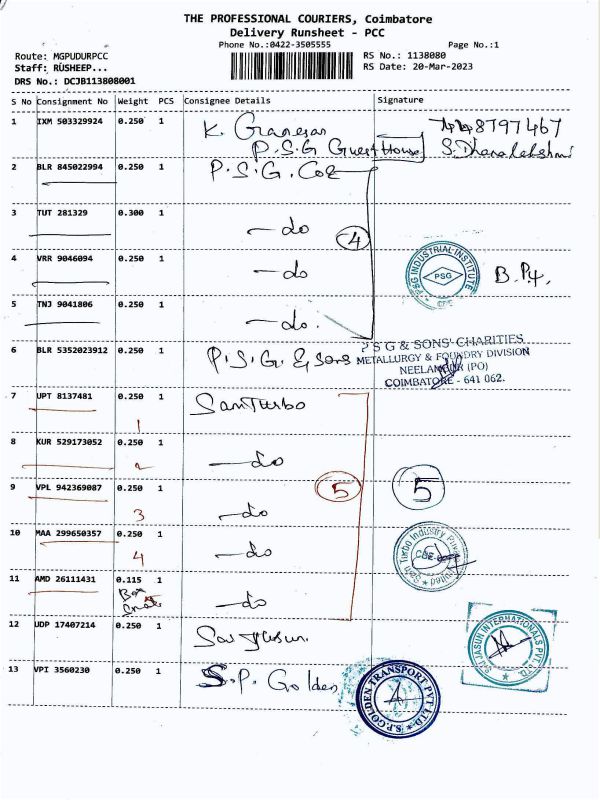 THE PROFESSIONAL COURIERS, Coimbatore
Delivery Runsheet - PCC
Phone No.:0422-3505555 Page No.:1
Route: MGPUDURPCC RS No.: 1138080
Staff: RUSHEEP... RS Date: 20-Mar-2023
DRS No.: DCJB113808001
S No Consignment No Weight PCS Consignee Details Signature
1 IXM 503329924 0.250 1 K. Ganesan
P.S.G Guest House S. Dhanalakshmi
2 BLR 845022994 0.250 1 P.S.G. CoE
3 TUT 281329 0.300 1 — do 4
4 VRR 9046094 0.250 1 — do
PSG INDUSTRIAL INSTITUTE
PSG
5 TNJ 9041806 0.250 1 — do.
6 BLR 5352023912 0.250 1 P.S.G. & Sons
P S G & SONS' CHARITIES
METALLURGY & FOUNDRY DIVISION
NEELAMBUR (PO)
COIMBATORE - 641 062.
7 UPT 8137481 0.250 1 Sam Turbo
1
8 KUR 529173052 0.250 1 — do
2
9 VPL 942369087 0.250 1 — do 5 5
3
10 MAA 299650357 0.250 1 — do
4
11 AMD 26111431 0.115 1 — do
12 UDP 17407214 0.250 1
13 VPI 3560230 0.250 1 S.P. Golden
S.P.GOLDEN TRANSPORT PVT LTD